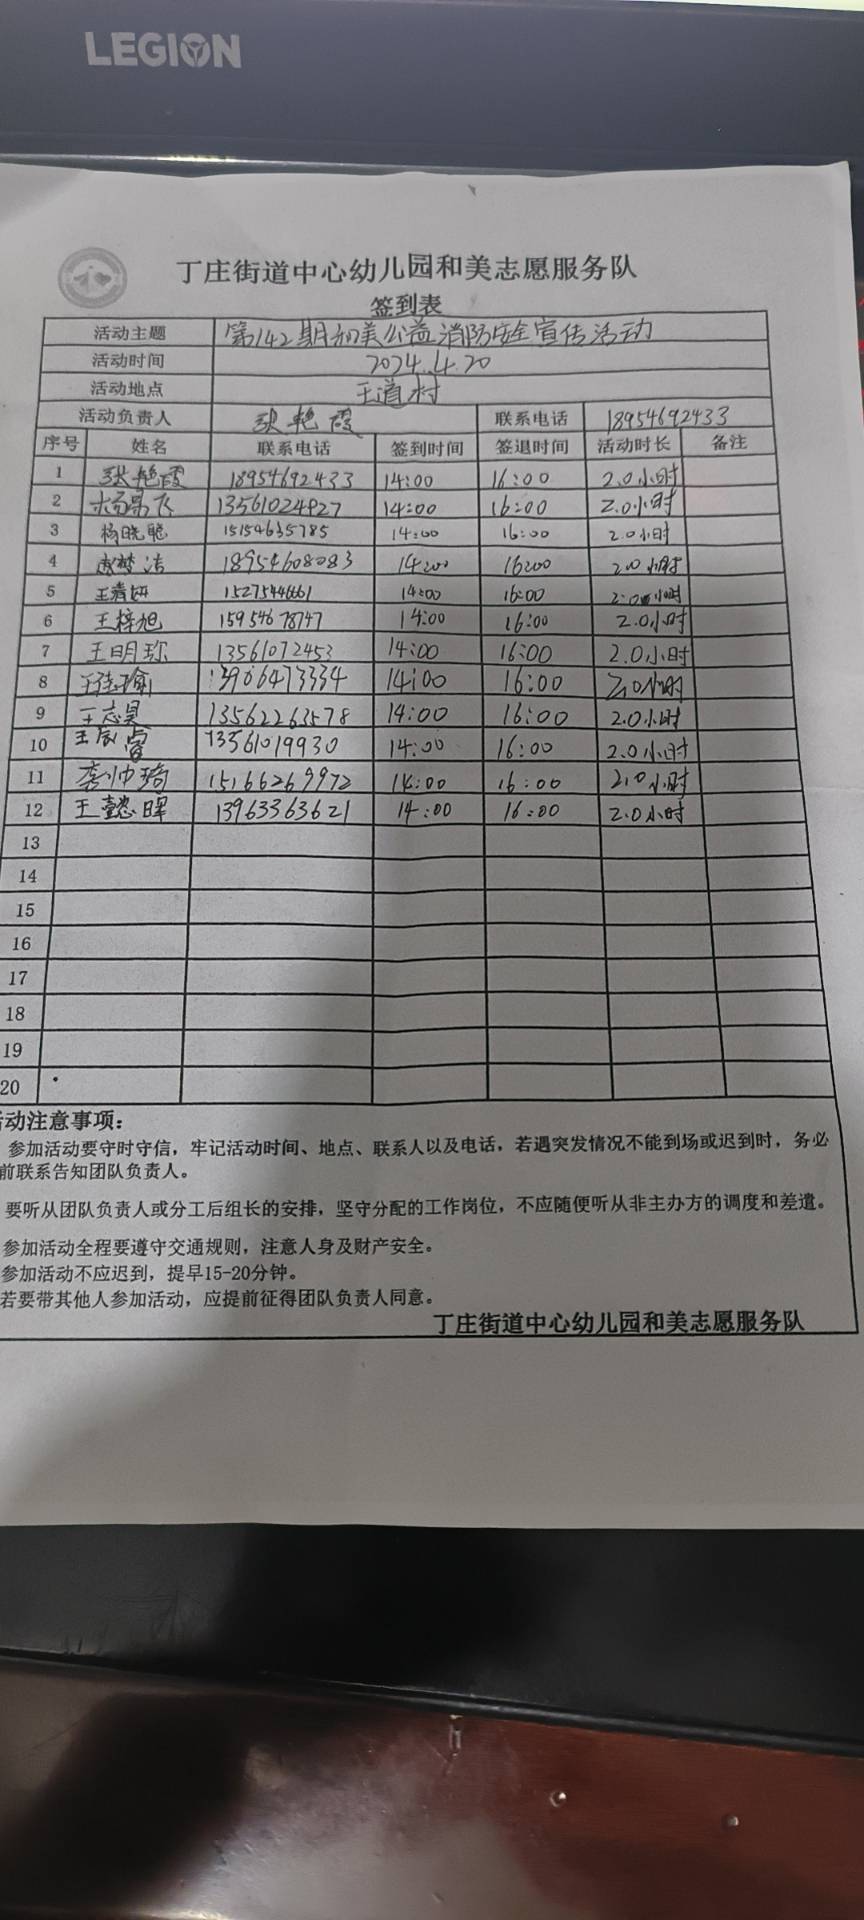 LEGION
丁庄街道中心幼儿园和美志愿服务队
签到表
活动主题 第142期和美公益消防安全宣传活动
活动时间 2024.4.20
活动地点 王道村
活动负责人 张艳霞 联系电话 18954692433
序号 姓名 联系电话 签到时间 签退时间 活动时长 备注
1 张艳霞 18954692433 14:00 16:00 2.0小时
2 杨昂飞 13561024927 14:00 16:00 2.0小时
3 杨晓聪 15154635785 14:00 16:00 2.0小时
4 18954608083 14:00 16:00 2.0小时
5 王清妍 15275446661 14:00 16:00 2.0小时
6 王梓旭 15954678747 14:00 16:00 2.0小时
7 王明珎 13561072453 14:00 16:00 2.0小时
8 13906473334 14:00 16:00 2.0小时
9 王志昊 13562263578 14:00 16:00 2.0小时
10 王辰睿 13561019930 14:00 16:00 2.0小时
11 李帅琦 15166269972 14:00 16:00 2.0小时
12 王懿晖 13963363621 14:00 16:00 2.0小时
13
14
15
16
17
18
19
20
活动注意事项：
参加活动要守时守信，牢记活动时间、地点、联系人以及电话，若遇突发情况不能到场或迟到时，务必
前联系告知团队负责人。
要听从团队负责人或分工后组长的安排，坚守分配的工作岗位，不应随便听从非主办方的调度和差遣。
参加活动全程要遵守交通规则，注意人身及财产安全。
参加活动不应迟到，提早15-20分钟。
若要带其他人参加活动，应提前征得团队负责人同意。
丁庄街道中心幼儿园和美志愿服务队